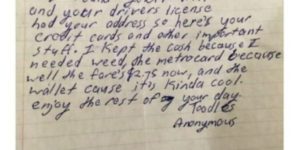 and your drivers license
had your address so here's your
credit cards and other important
stuff. I kept the cash because I
needed weed, the metrocard because
well the fare's $2.75 now, and the
wallet cause it's kinda cool.
enjoy the rest of your day.
Toodles
Anonymous